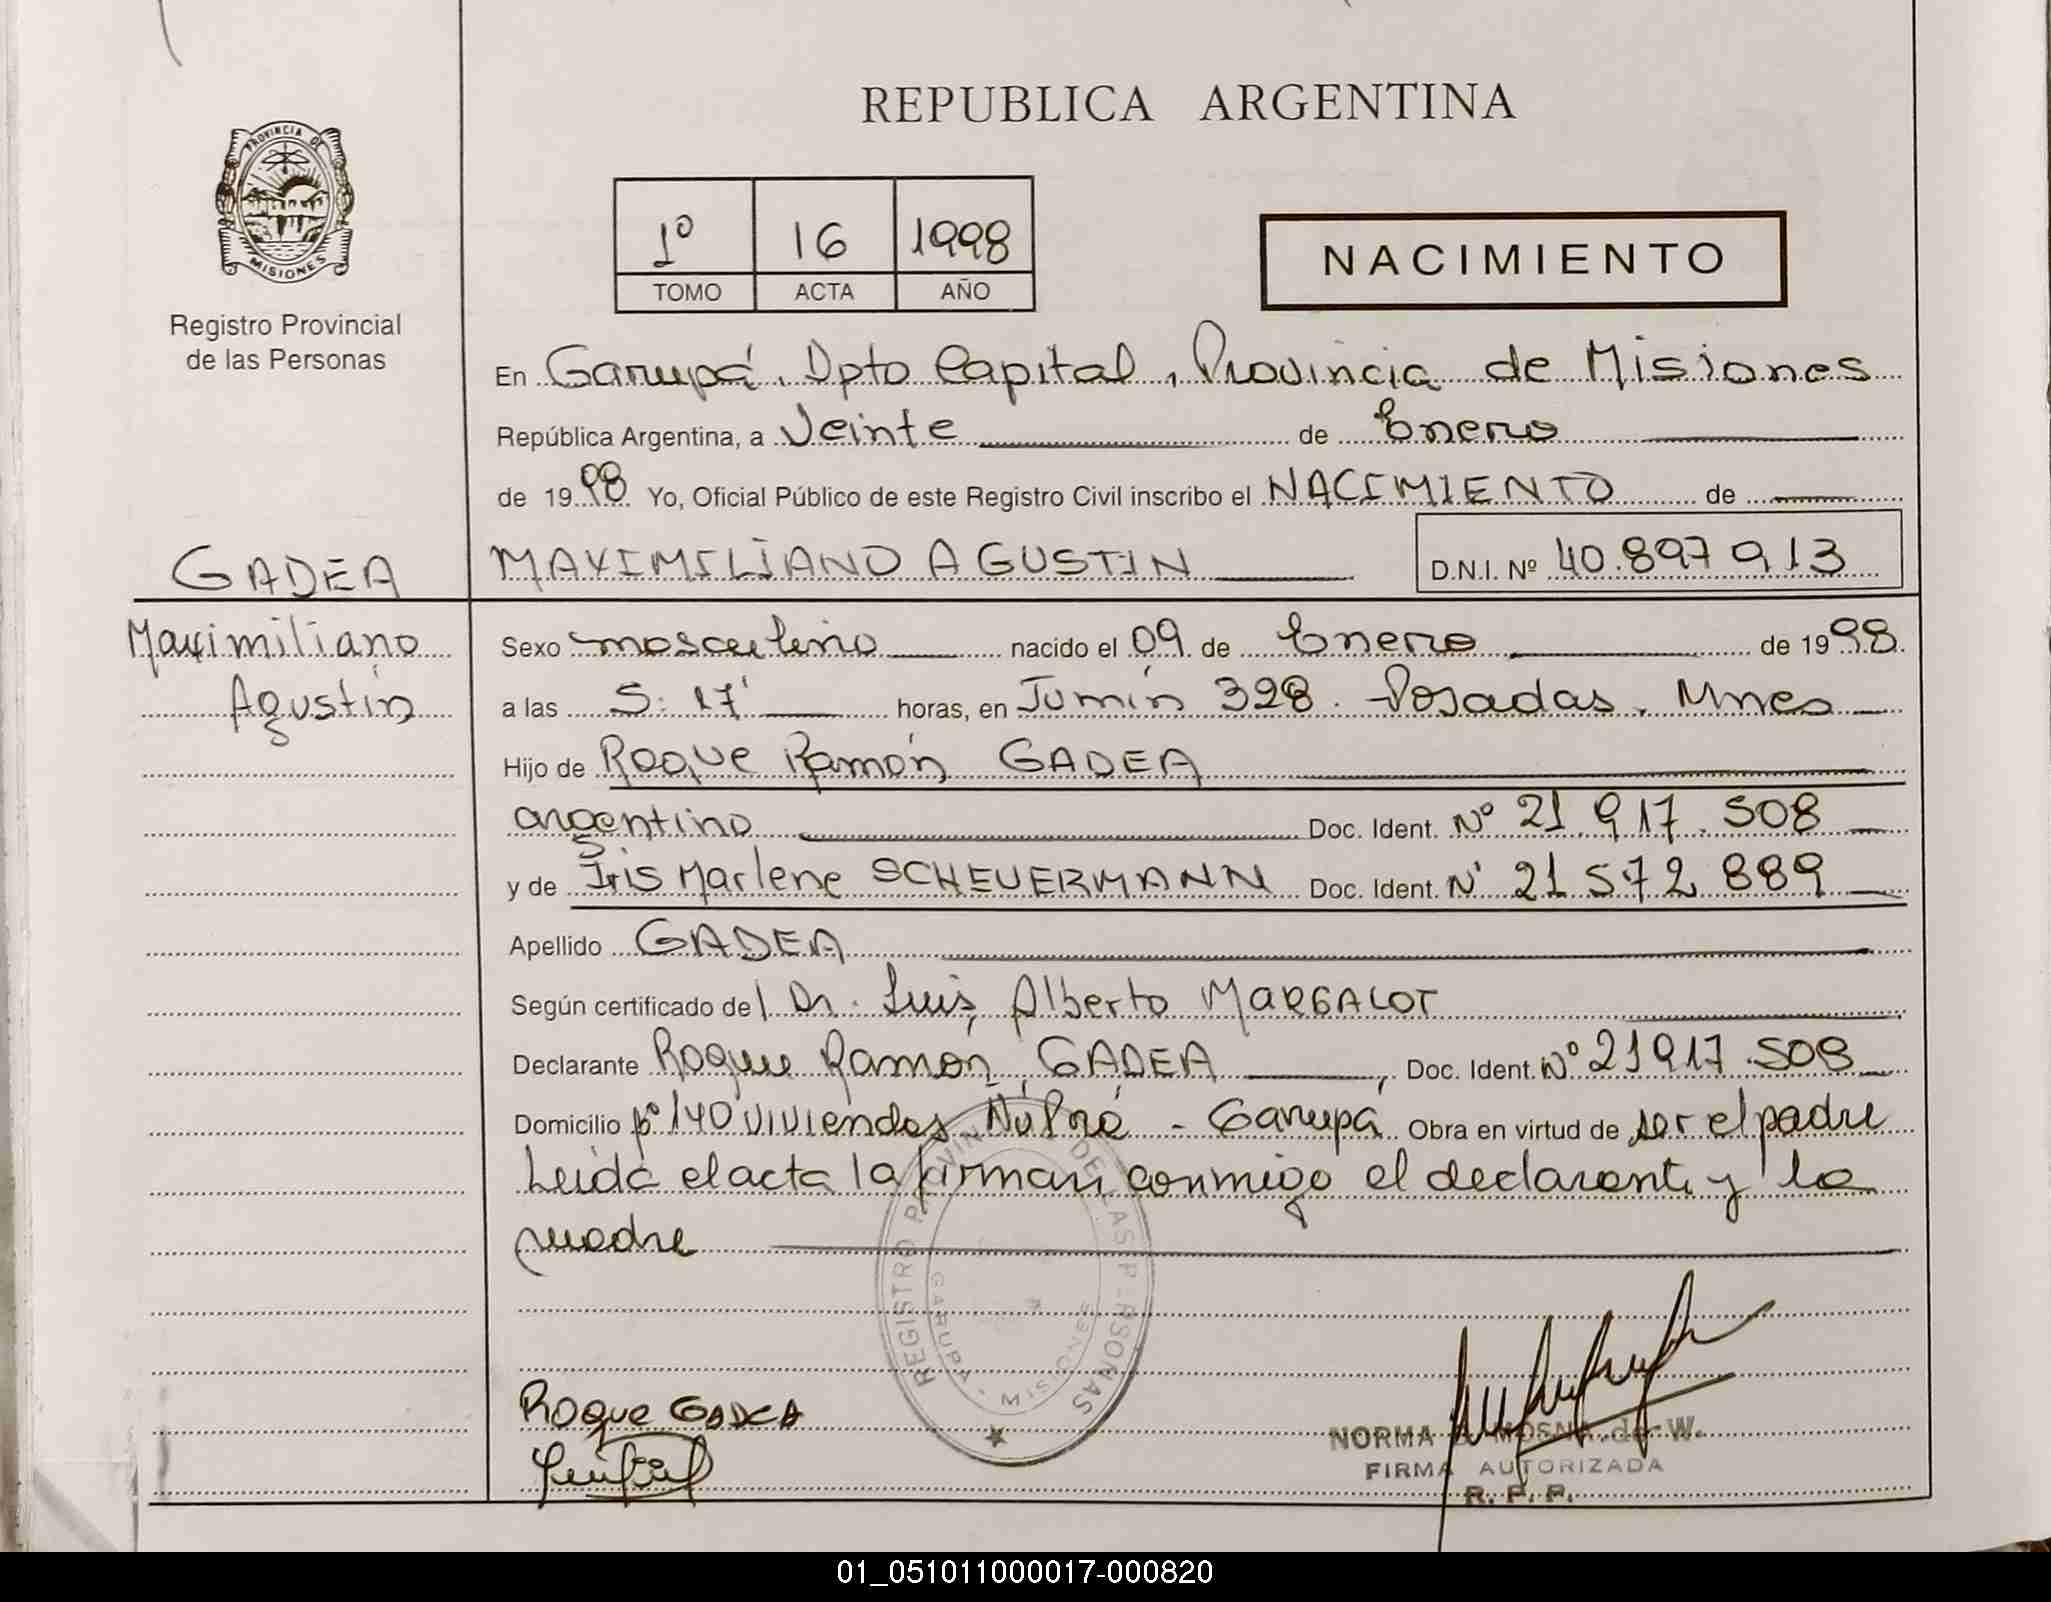 REPUBLICA ARGENTINA
PROVINCIA DE
MISIONES
Registro Provincial
de las Personas
1º 16 1998
TOMO ACTA AÑO
NACIMIENTO
En Garupá, Dpto Capital, Provincia de Misiones
República Argentina, a Veinte de Enero
de 1998 Yo, Oficial Público de este Registro Civil inscribo el NACIMIENTO de
GADEA
MAXIMILIANO AGUSTIN D.N.I. Nº 40.897913
Maximiliano
Agustín
Sexo masculino nacido el 09 de Enero de 1998.
a las 5:17' horas, en Junín 328. Posadas. Mnes
Hijo de Roque Ramón GADEA
argentino Doc. Ident. Nº 21.917.508
y de Iris Marlene SCHEUERMANN Doc. Ident. Nº 21 572 889
Apellido GADEA
Según certificado del Dr. Luis Alberto MARGALOT
Declarante Roque Ramón GADEA, Doc. Ident. Nº 21917.508
Domicilio Bº 140 viviendas Ñu Porá - Garupá Obra en virtud de ser el padre
Leída el acta la firman conmigo el declarante y la
madre
REGISTRO PROVIN DE LAS P RSONAS
GARUPA - MISIONES
Roque GADEA
NORMA MOSNA de W.
FIRMA AUTORIZADA
R. P. P.
01_051011000017-000820